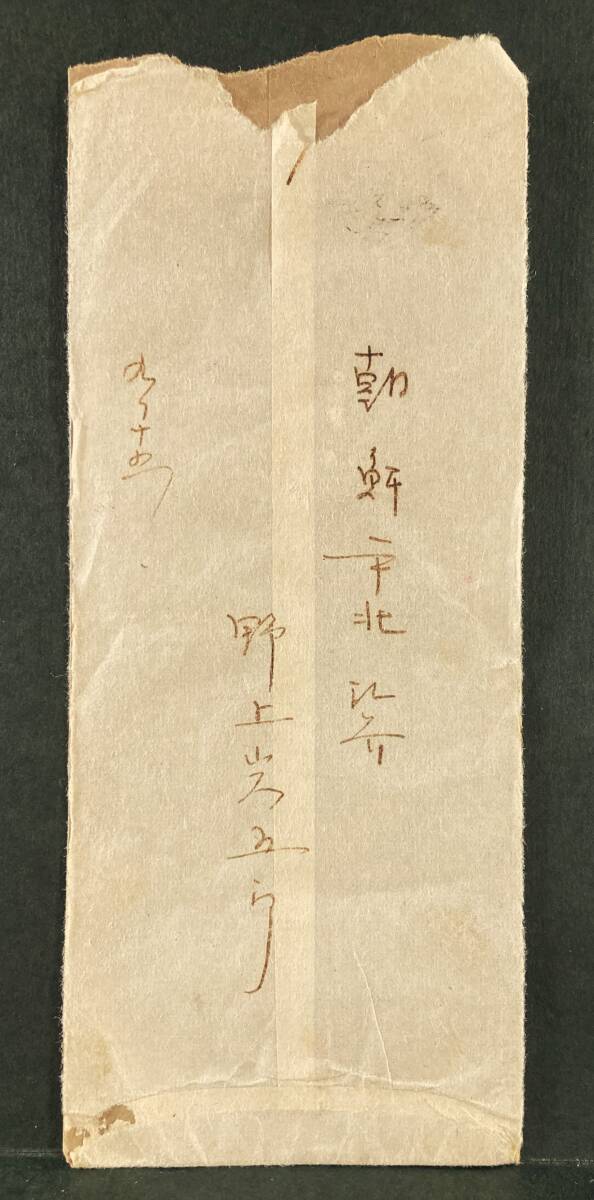 朝鮮平北江界
野上㟢五郎
九ノ十五